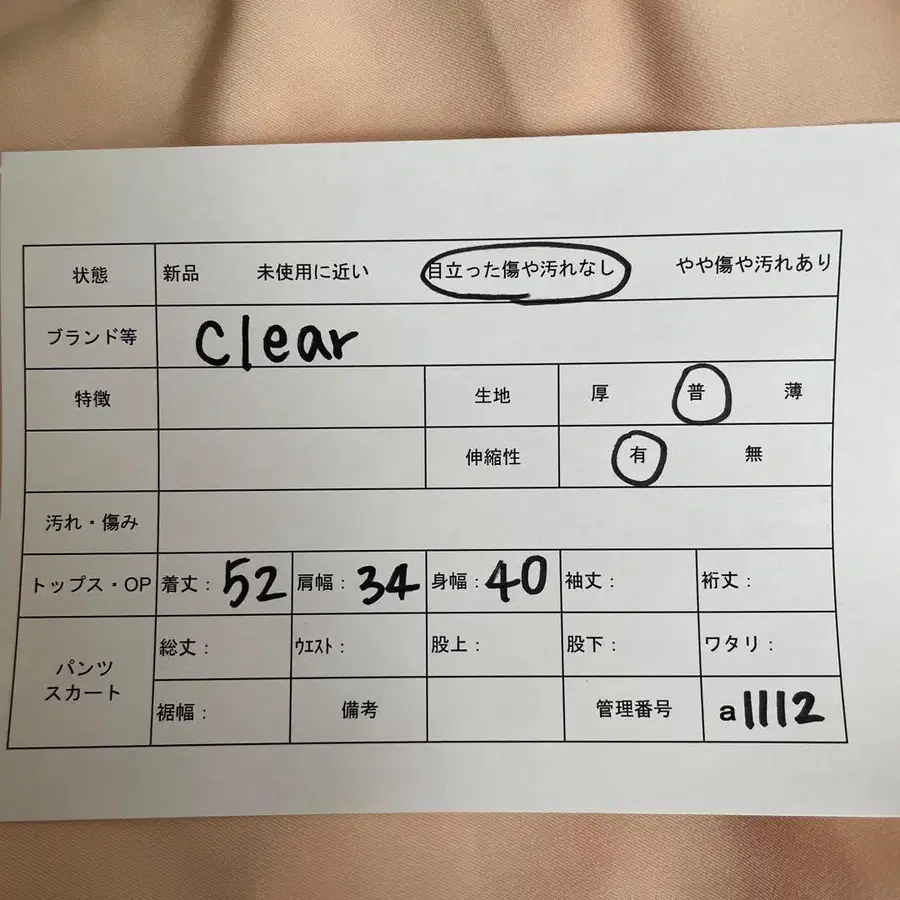 状態 新品 未使用に近い 目立った傷や汚れなし やや傷や汚れあり
ブランド等 clear
特徴 生地 厚 普 薄
伸縮性 有 無
汚れ・傷み
トップス・OP 着丈: 52 肩幅: 34 身幅: 40 袖丈: 裄丈:
パンツ スカート 総丈: ウエスト: 股上: 股下: ワタリ:
裾幅: 備考 管理番号 a1112